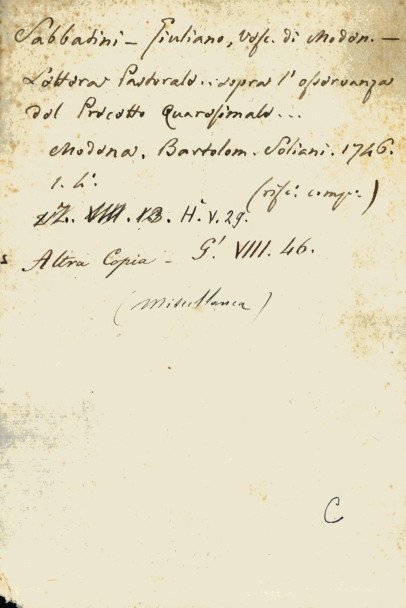 Sabbatini - Giuliano, Vesc. di Modon. -
Lettera Pastorale .. sopra l'osservanza
del Precetto Quaresimale ...
Modena. Bartolom. Soliani. 1746.
1. 4.º
(rifc: comp.e)
VIII. 13. H.ª V. 29.
Altra Copia - G.¹ VIII. 46.
(Miscellanea)
C